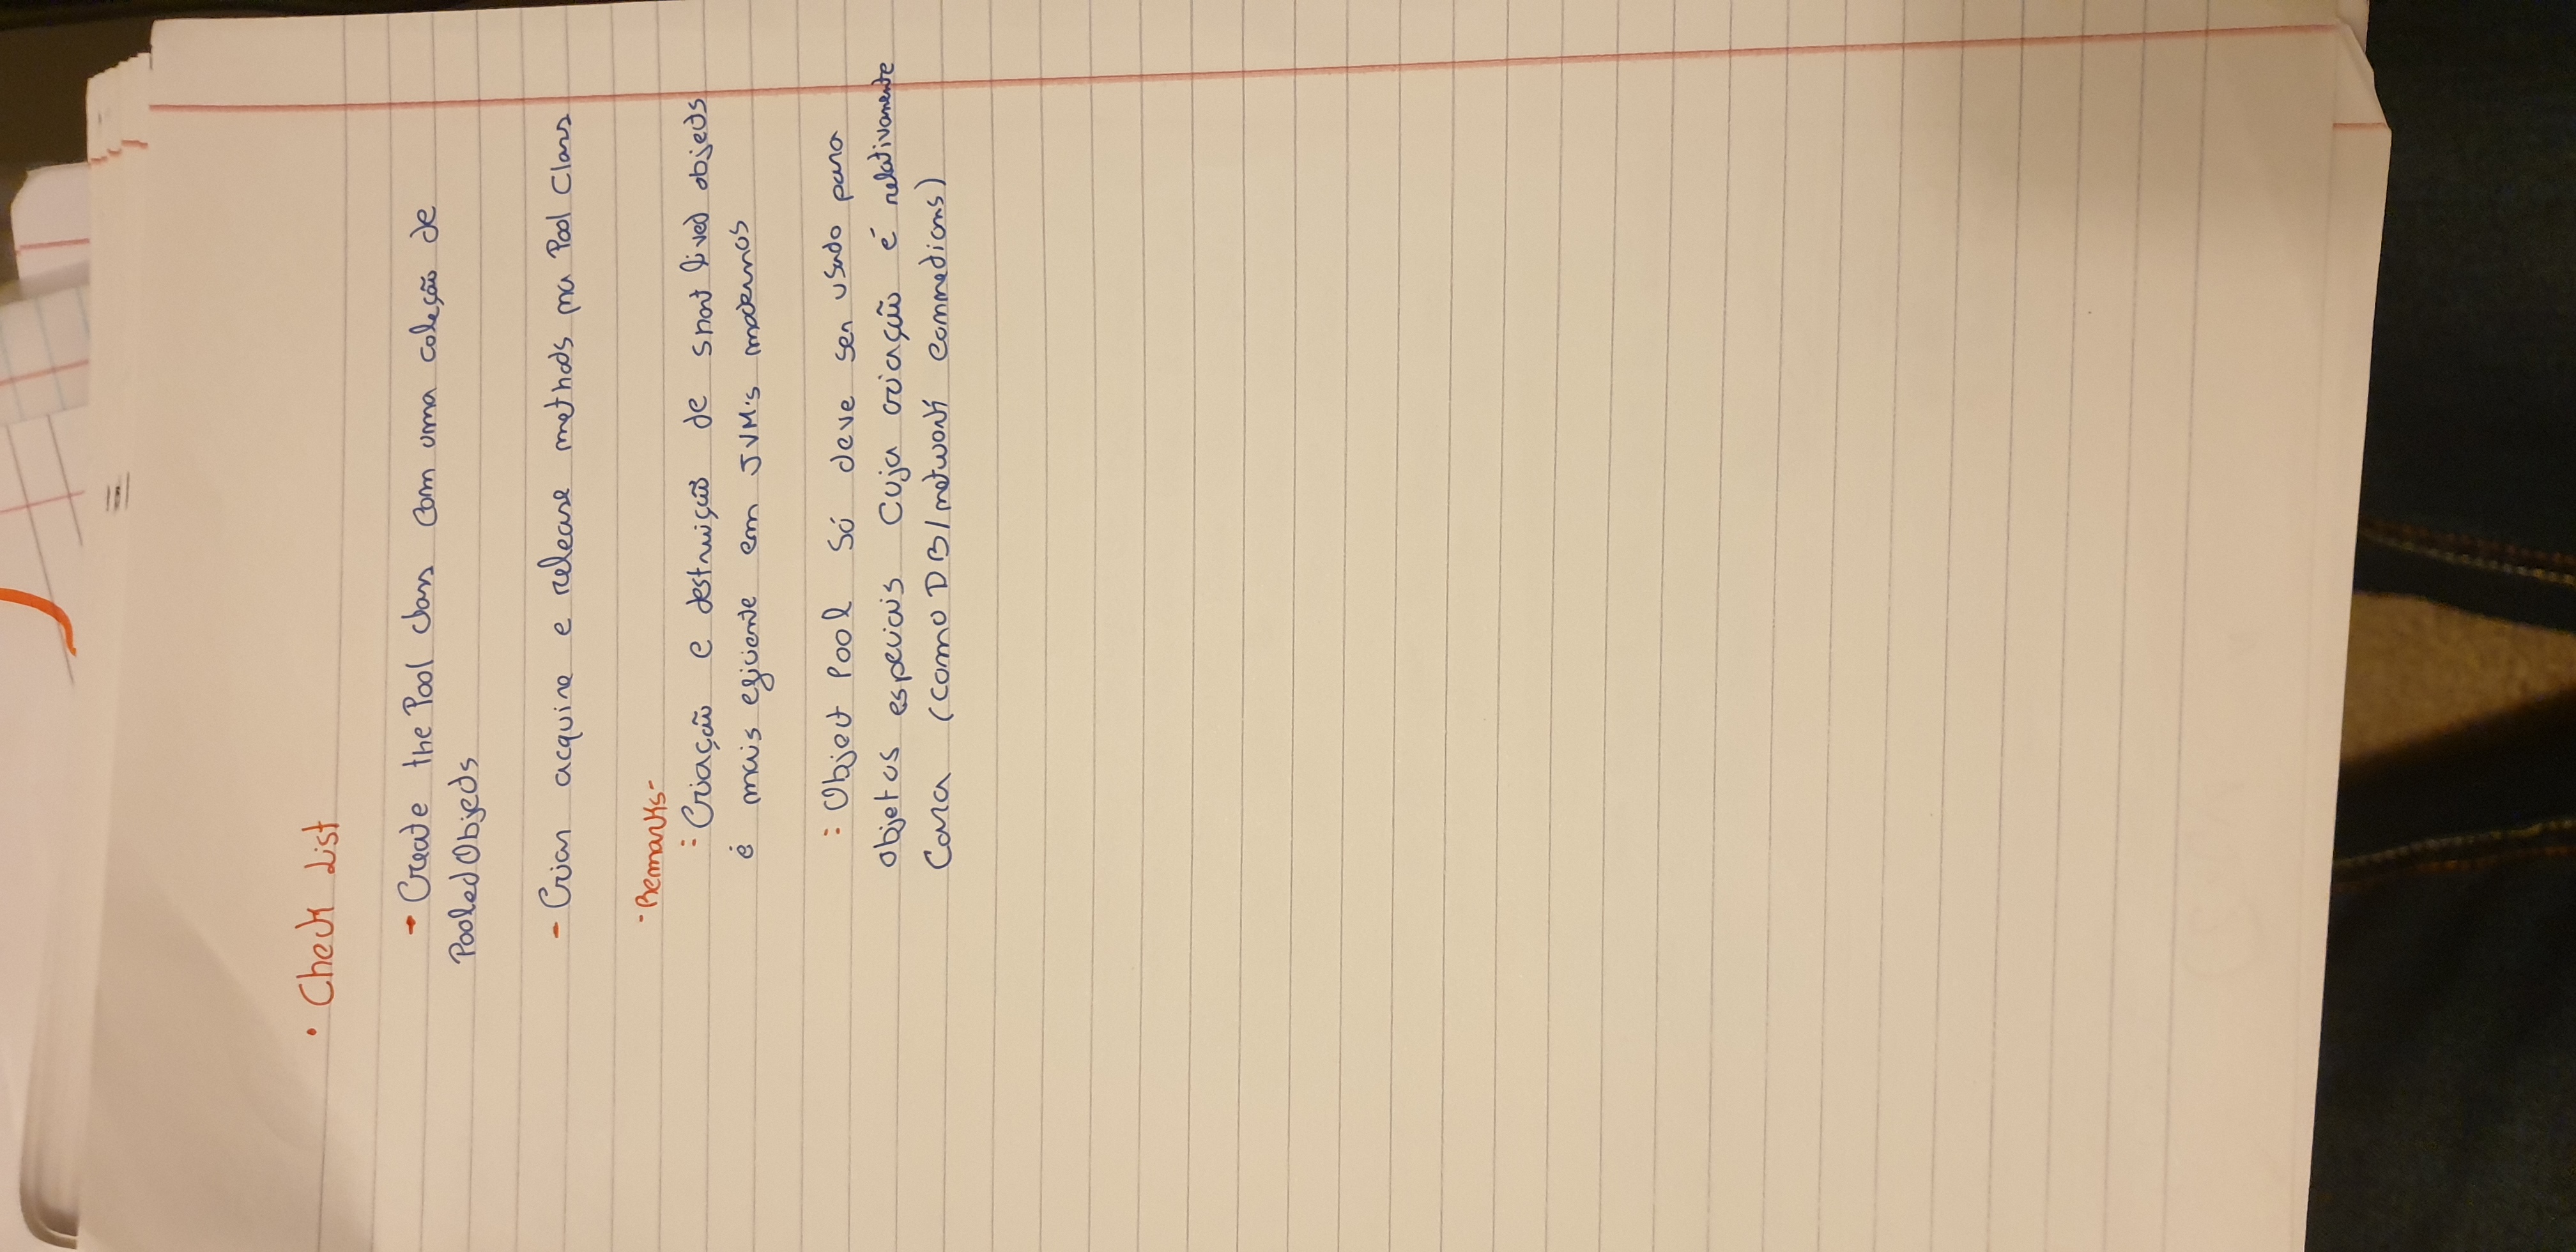 • Check List
- Create the Pool class com uma coleção de
PooledObjects
- Criar acquire e release methods na Pool Class
-Remarks-
: Criação e destruição de short lived objects
é mais eficiente em JVM's modernos
: Object Pool só deve ser usado para
objetos especiais cuja criação é relativamente
cara (como DB/network connections)